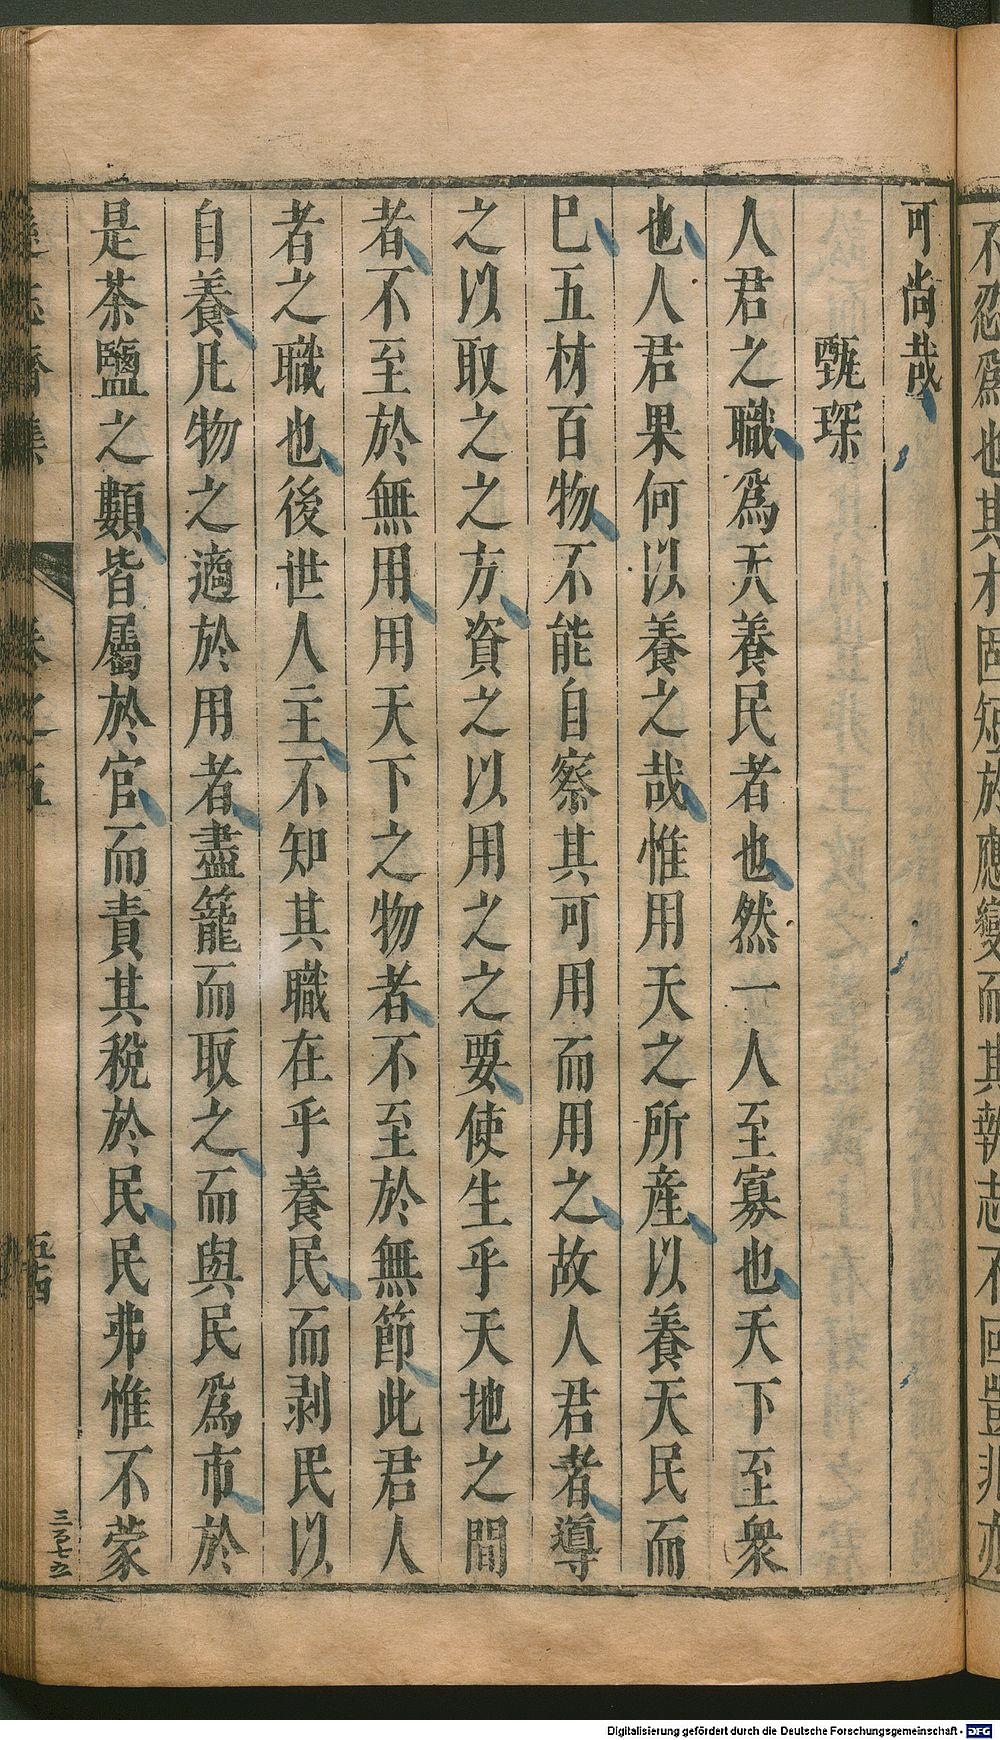 不忍爲也其才固短於應變而其執志不回豈非亦
可尚哉
甄琛
人君之職爲天養民者也然一人至寡也天下至衆
也人君果何以養之哉惟用天之所産以養天民而
巳五材百物不能自察其可用而用之故人君者導
之以取之之方資之以用之之要使生乎天地之間
者不至於無用用天下之物者不至於無節此君人
者之職也後世人主不知其職在乎養民而剥民以
自養凡物之適於用者盡籠而取之而與民爲市於
是茶鹽之類皆屬於官而責其稅於民民弗惟不蒙
遜志齋集
卷之五
五四
三百七五
Digitalisierung gefördert durch die Deutsche Forschungsgemeinschaft - DFG